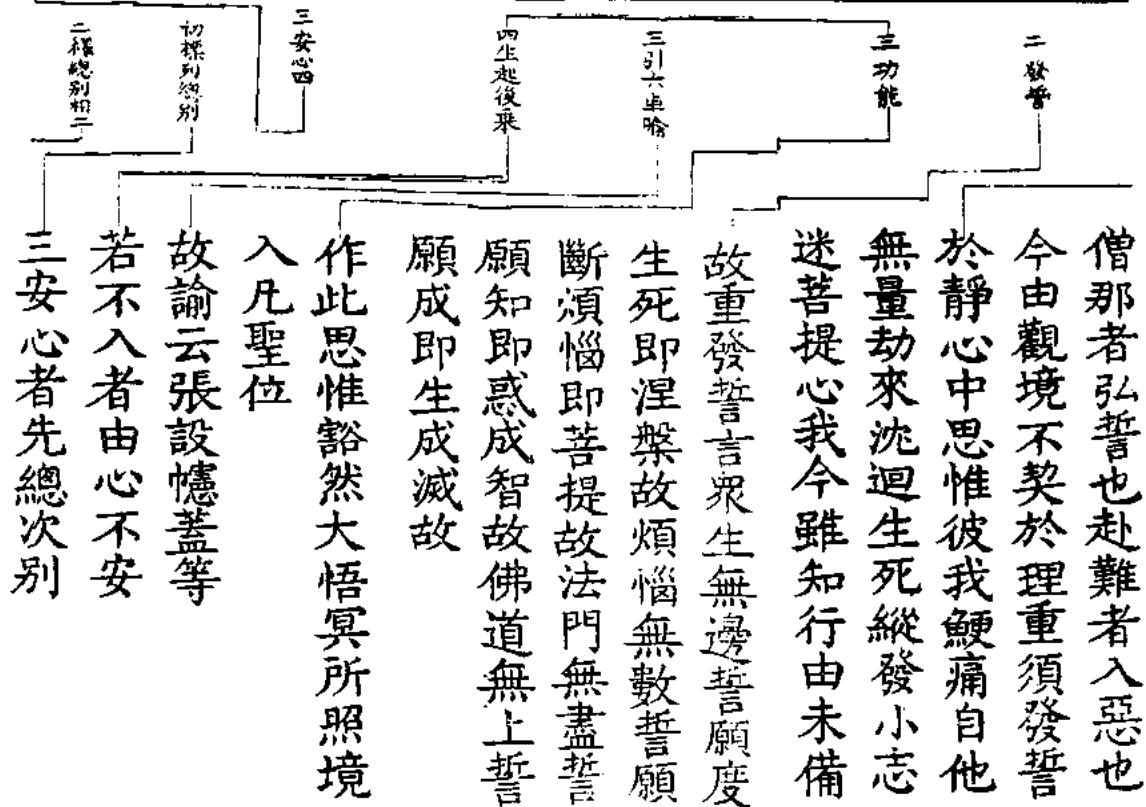 二發誓
三功能
三引六車喻
四生起後乘
三安心四
初標列總別
二釋總別相二
僧那者弘誓也赴難者入惡也
今由觀境不契於理重須發誓
於靜心中思惟彼我鯁痛自他
無量劫來沈迴生死縱發小志
迷菩提心我今雖知行由未備
故重發誓言眾生無邊誓願度
生死即涅槃故煩惱無數誓願
斷煩惱即菩提故法門無盡誓
願知即惑成智故佛道無上誓
願成即生成滅故
作此思惟豁然大悟冥所照境
入凡聖位
故諭云張設幰蓋等
若不入者由心不安
三安心者先總次別